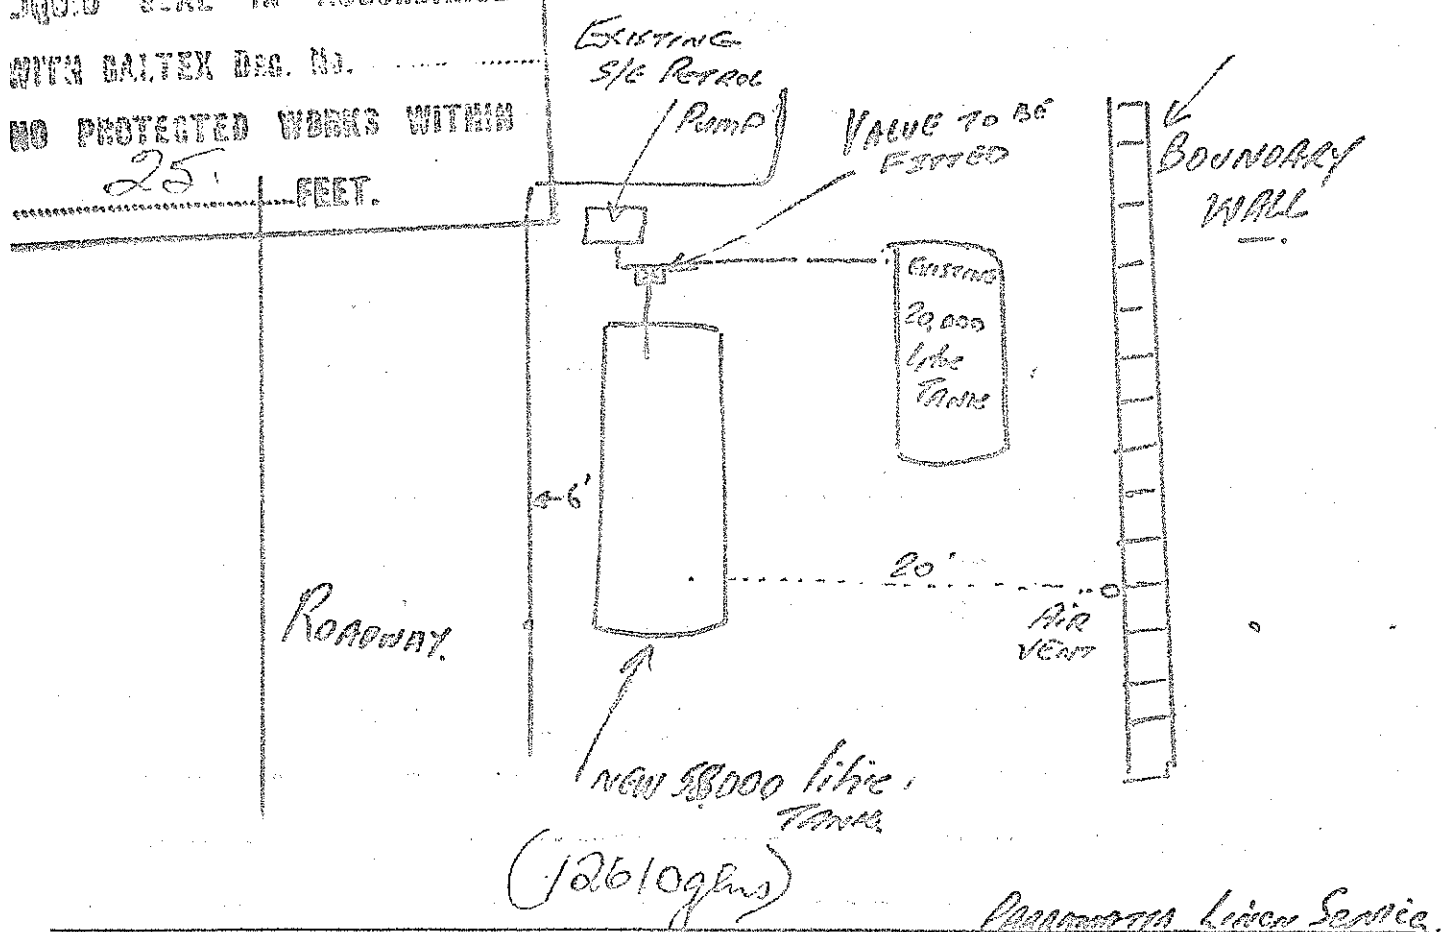 SEAL IN
WITH CALTEX DRG. No. ...........
NO PROTECTED WORKS WITHIN
25 FEET.
EXISTING
S/E PETROL
PUMP
VALUE TO BE
FITTED
BOUNDARY
WALL
EXISTING
20,000
litre
TANK
6'
20'
AIR
VENT
ROADWAY.
NEW 58000 litre
TANK
(12610 glns)
PARRAMATTA Linen Service.